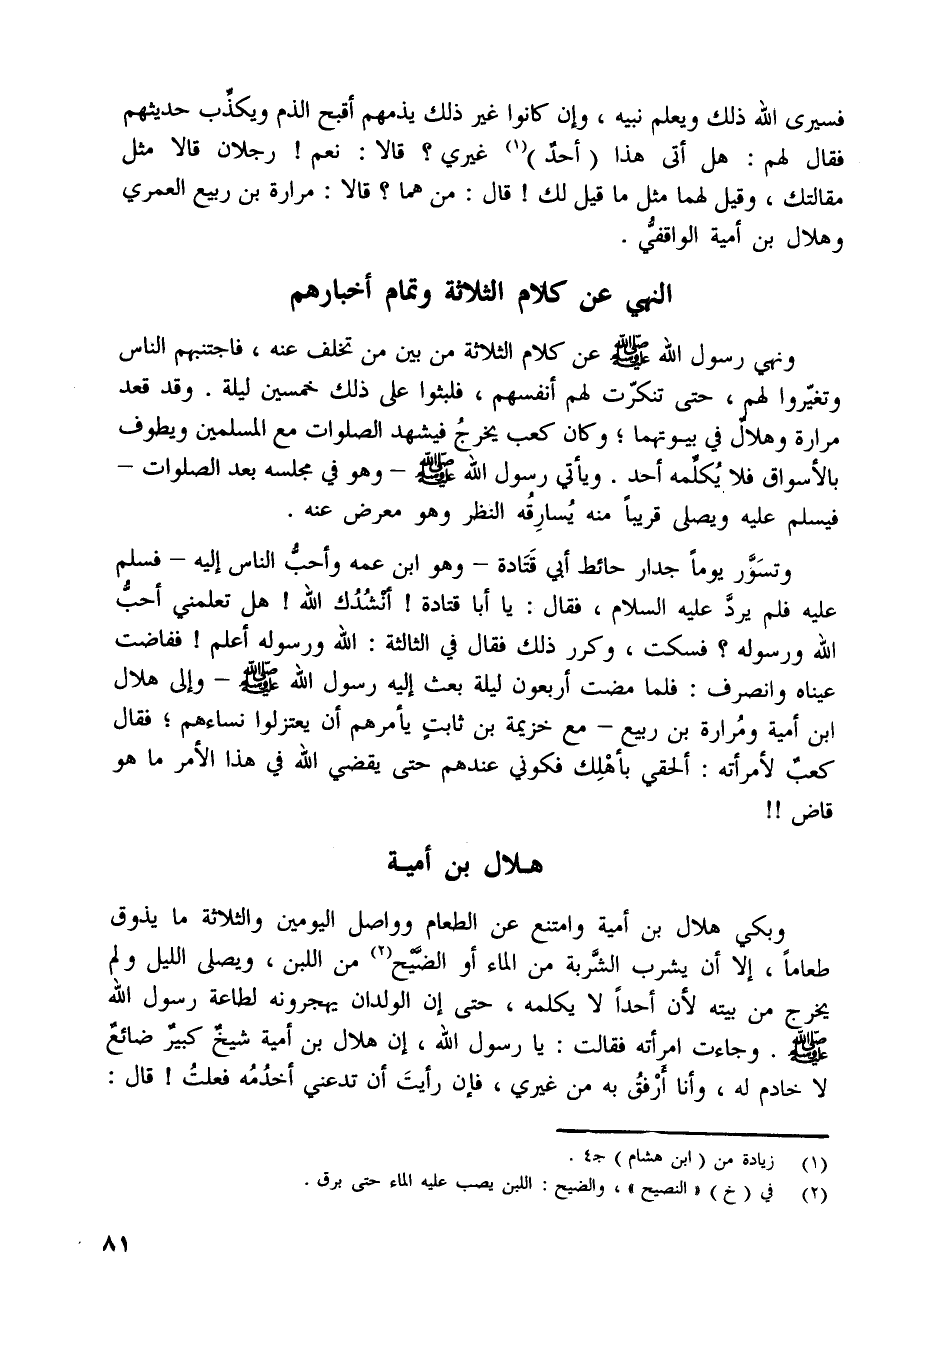 فسيرى الله ذلك ويعلم نبيه ، وإن كانوا غير ذلك يذمهم أقبح الذم ويكذِّب حديثهم
فقال لهم : هل أتى هذا ( أحدٌ )(١) غيري ؟ قالا : نعم ! رجلان قالا مثل
مقالتك ، وقيل لهما مثل ما قيل لك ! قال : من هما ؟ قالا : مرارة بن ربيع العمري
وهلال بن أمية الواقفيُّ .
النهي عن كلام الثلاثة وتمام أخبارهم
ونهي رسول الله ﷺ عن كلام الثلاثة من بين من تخلف عنه ، فاجتنبهم الناس
وتغيّروا لهم ، حتى تنكرّت لهم أنفسهم ، فلبثوا على ذلك خمسين ليلة . وقد قعد
مرارة وهلالٌ في بيوتهما ؛ وكان كعب يخرجُ فيشهد الصلوات مع المسلمين ويطوف
بالأسواق فلا يُكلِّمه أحد . ويأتي رسول الله ﷺ – وهو في مجلسه بعد الصلوات –
فيسلم عليه ويصلى قريباً منه يُسارِقُه النظر وهو معرض عنه .
وتسَوَّر يوماً جدار حائط أبي قَتَادة – وهو ابن عمه وأحبُّ الناس إليه – فسلم
عليه فلم يردَّ عليه السلام ، فقال : يا أبا قتادة ! أنْشُدُك الله ! هل تعلمني أحبُّ
الله ورسوله ؟ فسكت ، وكرر ذلك فقال في الثالثة : الله ورسوله أعلم ! ففاضت
عيناه وانصرف : فلما مضت أربعون ليلة بعث إليه رسول الله ﷺ – وإلى هلال
ابن أمية ومُرارة بن ربيع – مع خزيمة بن ثابتٍ يأمرهم أن يعتزلوا نساءهم ؛ فقال
كعبٌ لأمرأته : ألحقي بأهْلِك فكوني عندهم حتى يقضي الله في هذا الأمر ما هو
قاض !!
هـلال بن أميـة
وبكي هلال بن أمية وامتنع عن الطعام وواصل اليومين والثلاثة ما يذوق
طعاماً ، إلا أن يشرب الشَّربة من الماء أو الضَّيْح(٢) من اللبن ، ويصلى الليل ولم
يخرج من بيته لأن أحداً لا يكلمه ، حتى إن الولدان يهجرونه لطاعة رسول الله
ﷺ . وجاءت امرأته فقالت : يا رسول الله ، إن هلال بن أمية شيخٌ كبيرٌ ضائعٌ
لا خادم له ، وأنا أَرْفقُ به من غيري ، فإن رأيتَ أن تدعني أخدُمُه فعلتُ ! قال :
(١) زيادة من ( ابن هشام ) جـ٤ .
(٢) في ( خ ) « النصيح » ، والضيح : اللبن يصب عليه الماء حتى برق .
٨١